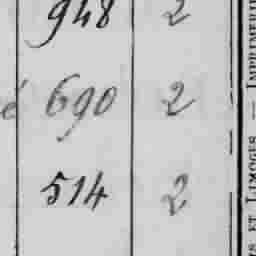 948 2
é 690 2
514 2
ET LIMOGES — IMPRIMERIE